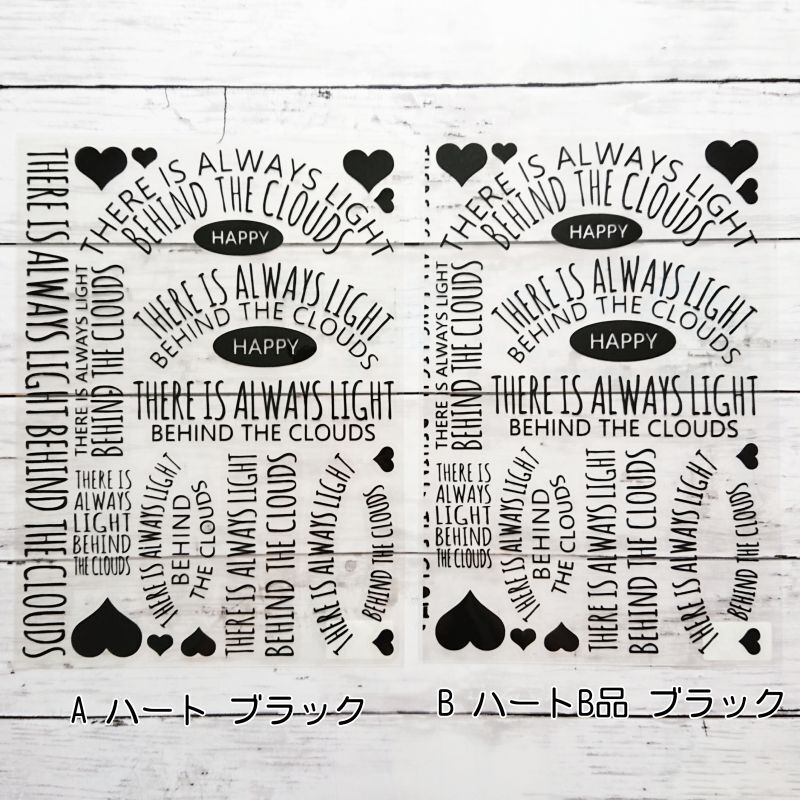 THERE IS ALWAYS LIGHT BEHIND THE CLOUDS
THERE IS ALWAYS LIGHT
BEHIND THE CLOUDS
HAPPY
THERE IS ALWAYS LIGHT
BEHIND THE CLOUDS
THERE IS ALWAYS LIGHT
BEHIND THE CLOUDS
HAPPY
THERE IS ALWAYS LIGHT
BEHIND THE CLOUDS
THERE IS
ALWAYS
LIGHT
BEHIND
THE CLOUDS
THERE IS ALWAYS LIGHT
BEHIND
THE CLOUDS
THERE IS ALWAYS LIGHT
BEHIND THE CLOUDS
THERE IS ALWAYS LIGHT
BEHIND THE CLOUDS
A ハート ブラック
THERE IS ALWAYS LIGHT
BEHIND THE CLOUDS
HAPPY
THERE IS ALWAYS LIGHT
BEHIND THE CLOUDS
THERE IS ALWAYS LIGHT
BEHIND THE CLOUDS
HAPPY
THERE IS ALWAYS LIGHT
BEHIND THE CLOUDS
THERE IS
ALWAYS
LIGHT
BEHIND
THE CLOUDS
THERE IS ALWAYS LIGHT
BEHIND
THE CLOUDS
THERE IS ALWAYS LIGHT
BEHIND THE CLOUDS
THERE IS ALWAYS LIGHT
BEHIND THE CLOUDS
B ハートB品 ブラック